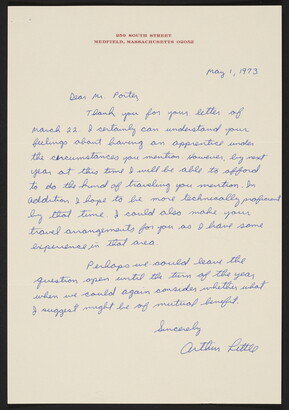 252 SOUTH STREET
MEDFIELD, MASSACHUSETTS 02052
May 1, 1973
Dear Mr. Porter
Thank you for your letter of
March 22. I certainly can understand your
feelings about having an apprentice under
the circumstances you mention. However, by next
year at this time I will be able to afford
to do the kind of traveling you mention. In
addition I hope to be more technically proficient
by that time. I could also make your
travel arrangements for you as I have some
experience in that area.
Perhaps we could leave the
question open until the turn of the year
when we could again consider whether what
I suggest might be of mutual benefit.
Sincerely
Arthur Little